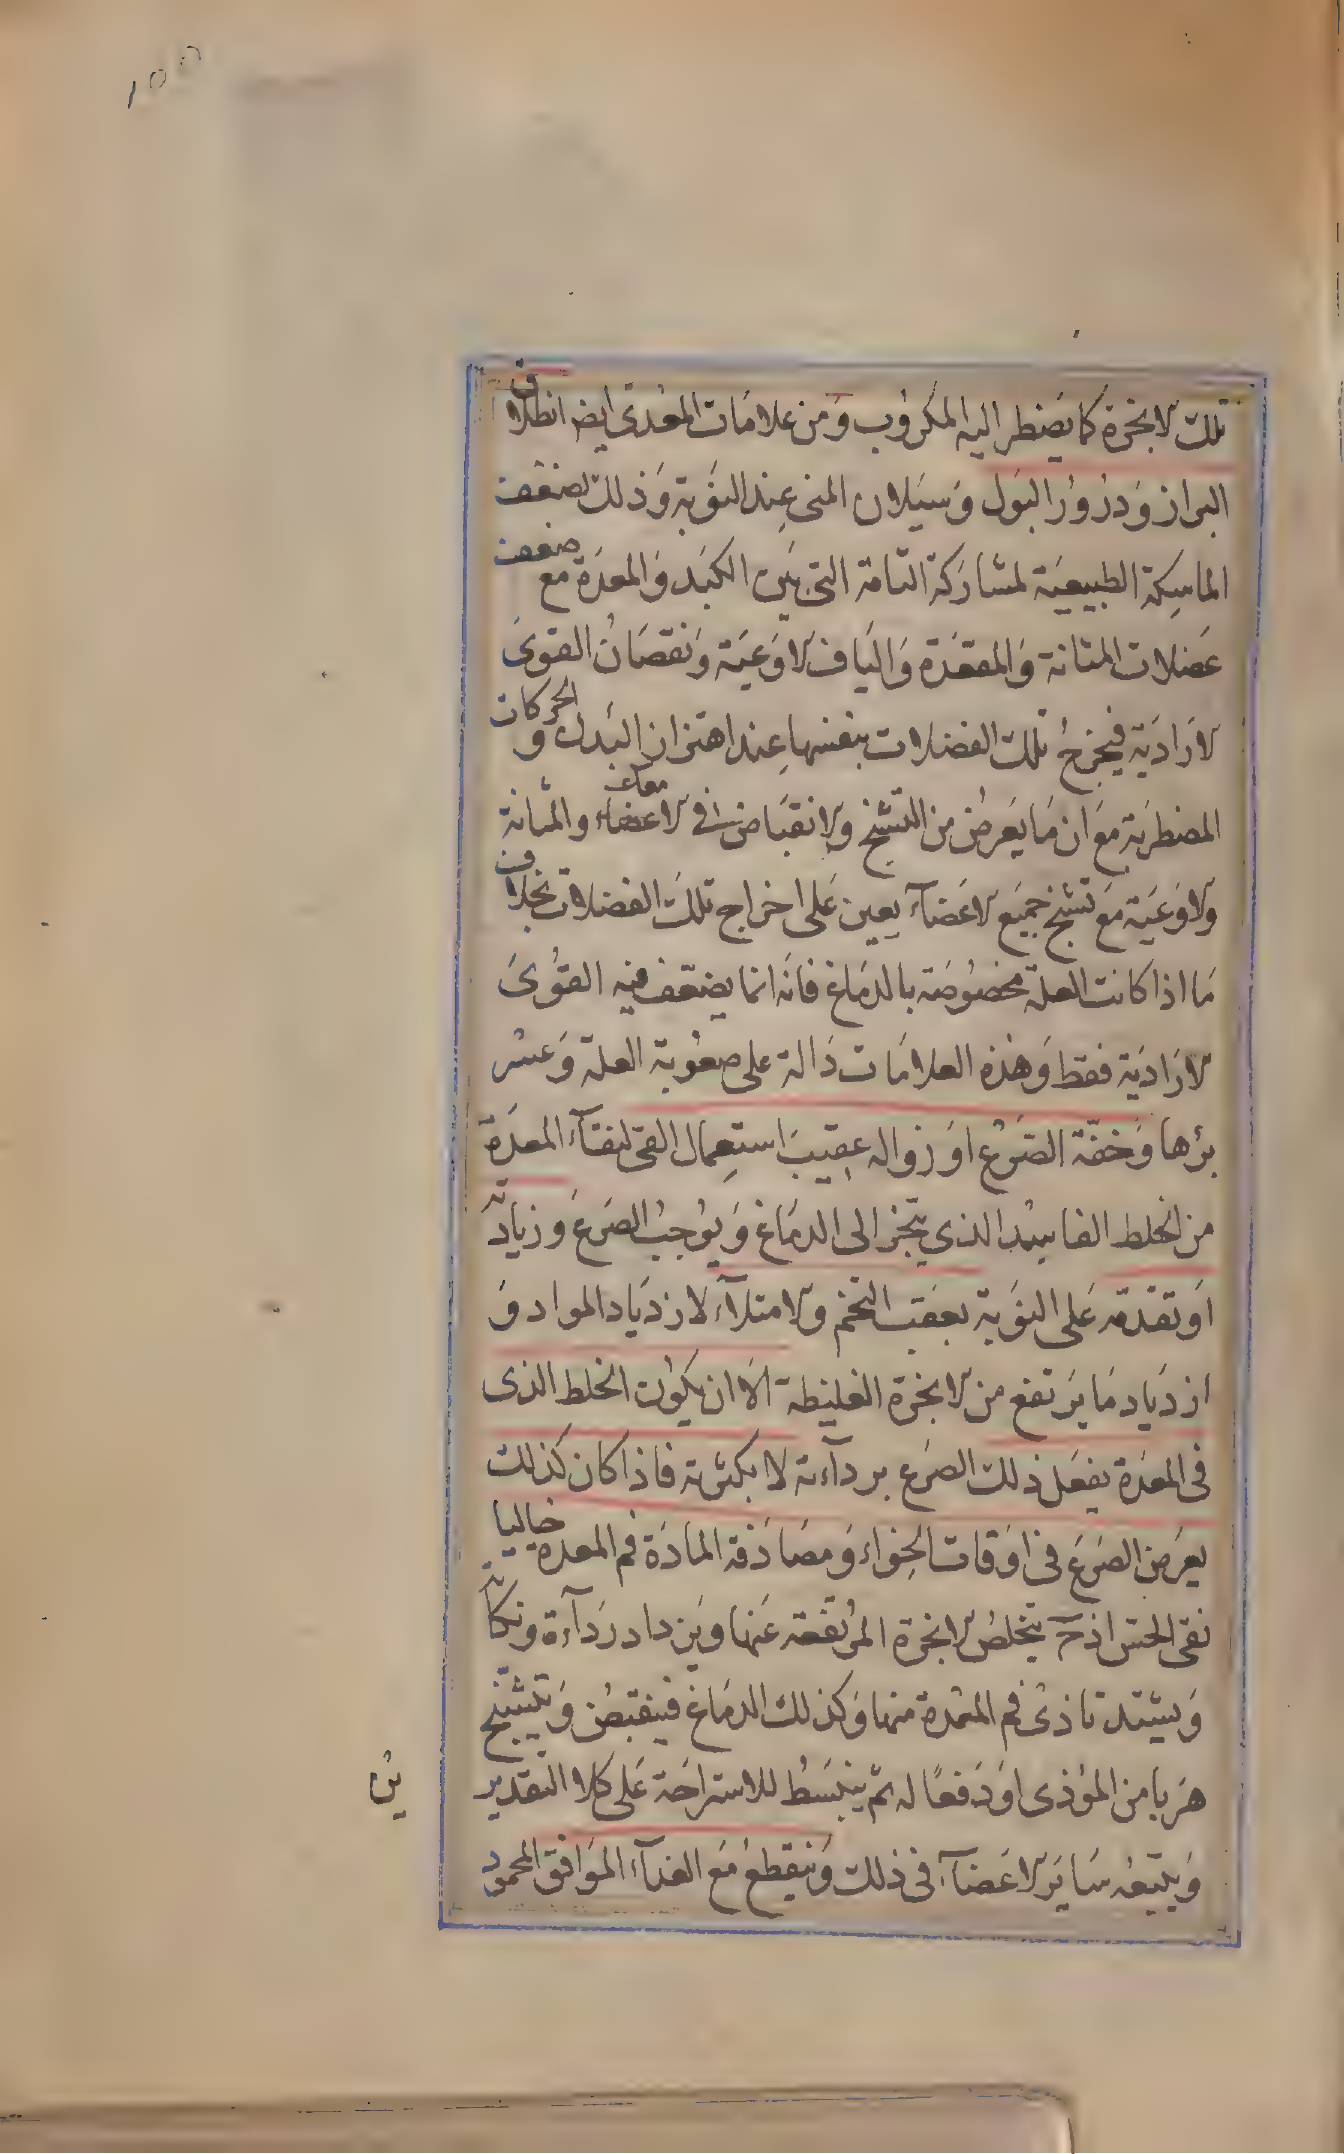 ١٥٥
تلك الابخرة كما يضطر اليه المكروب ومن علامات المعدى ايض انطلاق
البراز ودرور البول وسيلان المنى عند النوبة وذلك لضعف
الماسكة الطبيعية لمشاركة التامة التى بين الكبد والمعدة مع ضعف
عضلات المثانة والمقعدة والياف الاوعية ونقصان القوى
الارادية فيخرج تلك الفضلات بنفسها عند اهتزاز البدن و الحركات
المضطربة مع ان ما يعرض من التشنج والانقباض فى الاعضاء والمثانة
والاوعية مع تشنج جميع الاعضآء يعين على اخراج تلك الفضلات بخلاف
ما اذا كانت العلة مخصوصة بالدماغ فانه انما يضعف فيه القوى
الارادية فقط وهذه العلامات دالة على صعوبة العلة وعسر
برٔها وخفّة الصرع او زواله عقيب استعمال القى لنقآء المعدة
من الخلط الفاسد الذي يتبخر الى الدماغ ويوجب الصرع وزيادته
او تقدمه على النوبة بعقب التخم والامتلآء لازدياد المواد و
ازدياد ما يرتفع من الابخرة الغليظة الا ان يكون الخلط الذى
فى المعدة يفعل ذلك الصرع بردآءته لا بكثرته فاذا كان كذلك
يعرض الصرع فى اوقات الخواء ومصادفة المادة فم المعدة خاليا
نقى الحس اذ ح يتخلص الابخرة المرتفعة عنها ويزداد ردآءة ونكاية
ويشتد تاذى فم المعدة منها وكذلك الدماغ فينقبض ويتشنج
هربا من المؤذى او دفعا له ثم ينبسط للاستراحة على كلا التقديرين
ويتبعه ساير الاعضآء فى ذلك وينقطع مع الغذآء الموافق المحمود